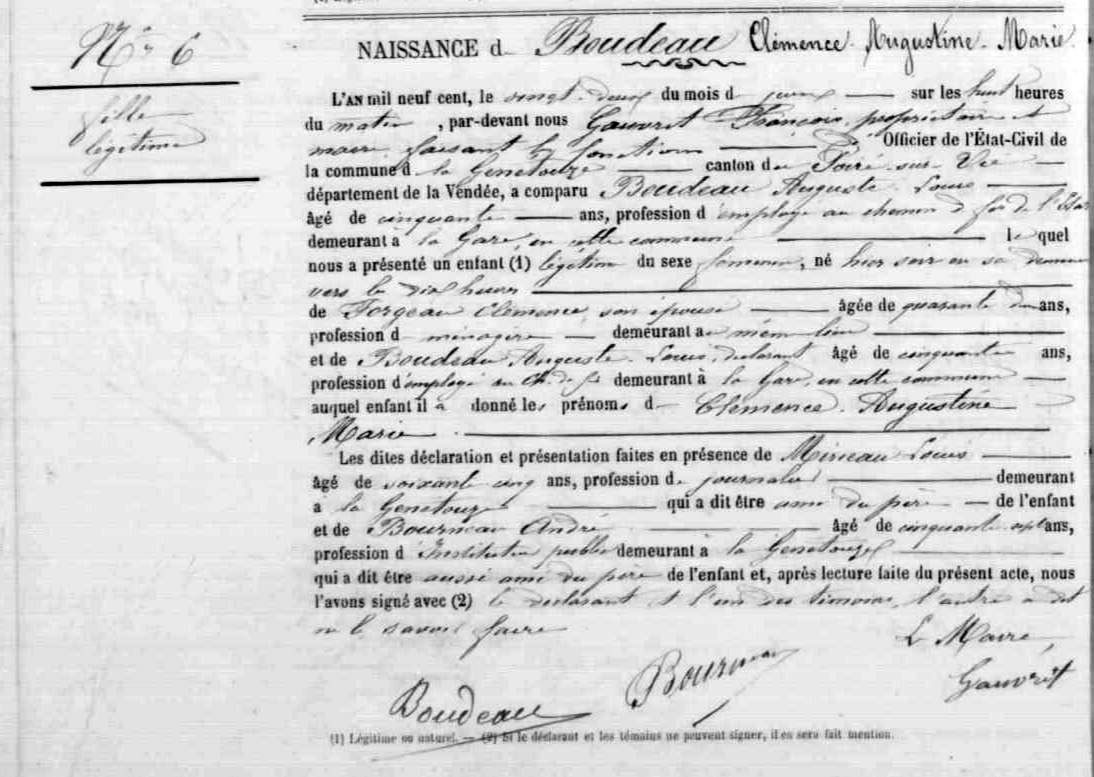 N° 6
fille
légitime
NAISSANCE d Boudeau Clémence Augustine Marie
L'AN mil neuf cent, le vingt deux du mois d juin sur les huit heures
du matin, par-devant nous Gauvrit François, propriétaire et
maire faisant les fonctions Officier de l'État-Civil de
la commune d la Genetouze canton d Poiré sur Vie
département de la Vendée, a comparu Boudeau Auguste Louis
âgé de cinquante ans, profession d'employé au chemin de fer de l'Etat
demeurant à la Gare, en cette commune lequel
nous a présenté un enfant (1) légitime du sexe féminin, né hier soir en sa demeure
vers les dix heures
de Forgeau Clémence son épouse âgée de quarante deux ans,
profession d ménagère demeurant au même lieu
et de Boudeau Auguste Louis, déclarant âgé de cinquante ans,
profession d'employé au Ch. de fer demeurant à la Gare en cette commune
auquel enfant il a donné les prénoms d Clémence Augustine
Marie
Les dites déclaration et présentation faites en présence de Mineau Louis
âgé de soixante cinq ans, profession de journalier demeurant
à la Genetouze qui a dit être ami du père de l'enfant
et de Bourneau André âgé de cinquante sept ans,
profession d Instituteur public demeurant à la Genetouze
qui a dit être aussi ami du père de l'enfant et, après lecture faite du présent acte, nous
l'avons signé avec (2) le déclarant et l'un des témoins, l'autre a dit
ne le savoir faire
Le Maire,
Boudeau Bourneau Gauvrit
(1) Légitime ou naturel. — (2) Si le déclarant et les témoins ne peuvent signer, il en sera fait mention.